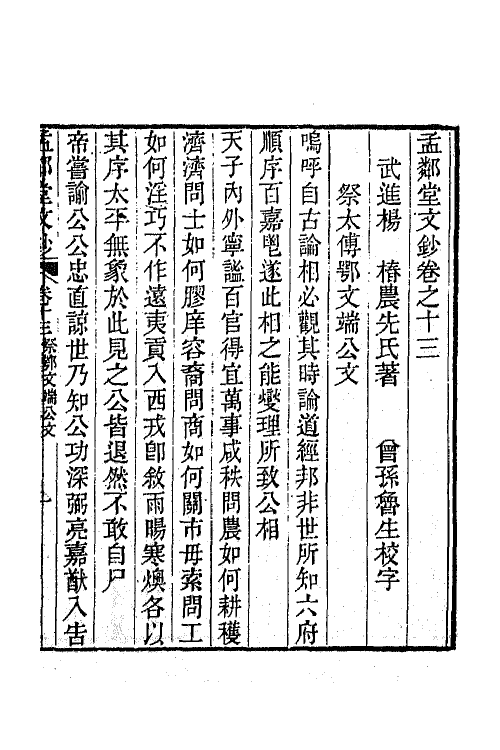 孟鄰堂文鈔卷之十三
武進楊　椿農先氏著　　曾孫魯生校字
祭太傅鄂文端公文
嗚呼自古論相必觀其時論道經邦非世所知六府
順序百嘉鬯遂此相之能燮理所致公相
天子內外寧謐百官得宜萬事咸秩問農如何耕穫
濟濟問士如何膠庠容裔問商如何關市毋索問工
如何淫巧不作遠夷貢入西戎卽敘雨暘寒燠各以
其序太平無象於此見之公皆退然不敢自尸
帝嘗諭公公忠直諒世乃知公功深弼亮嘉猷入告
孟鄰堂文鈔　卷十三祭鄂文端公文　一